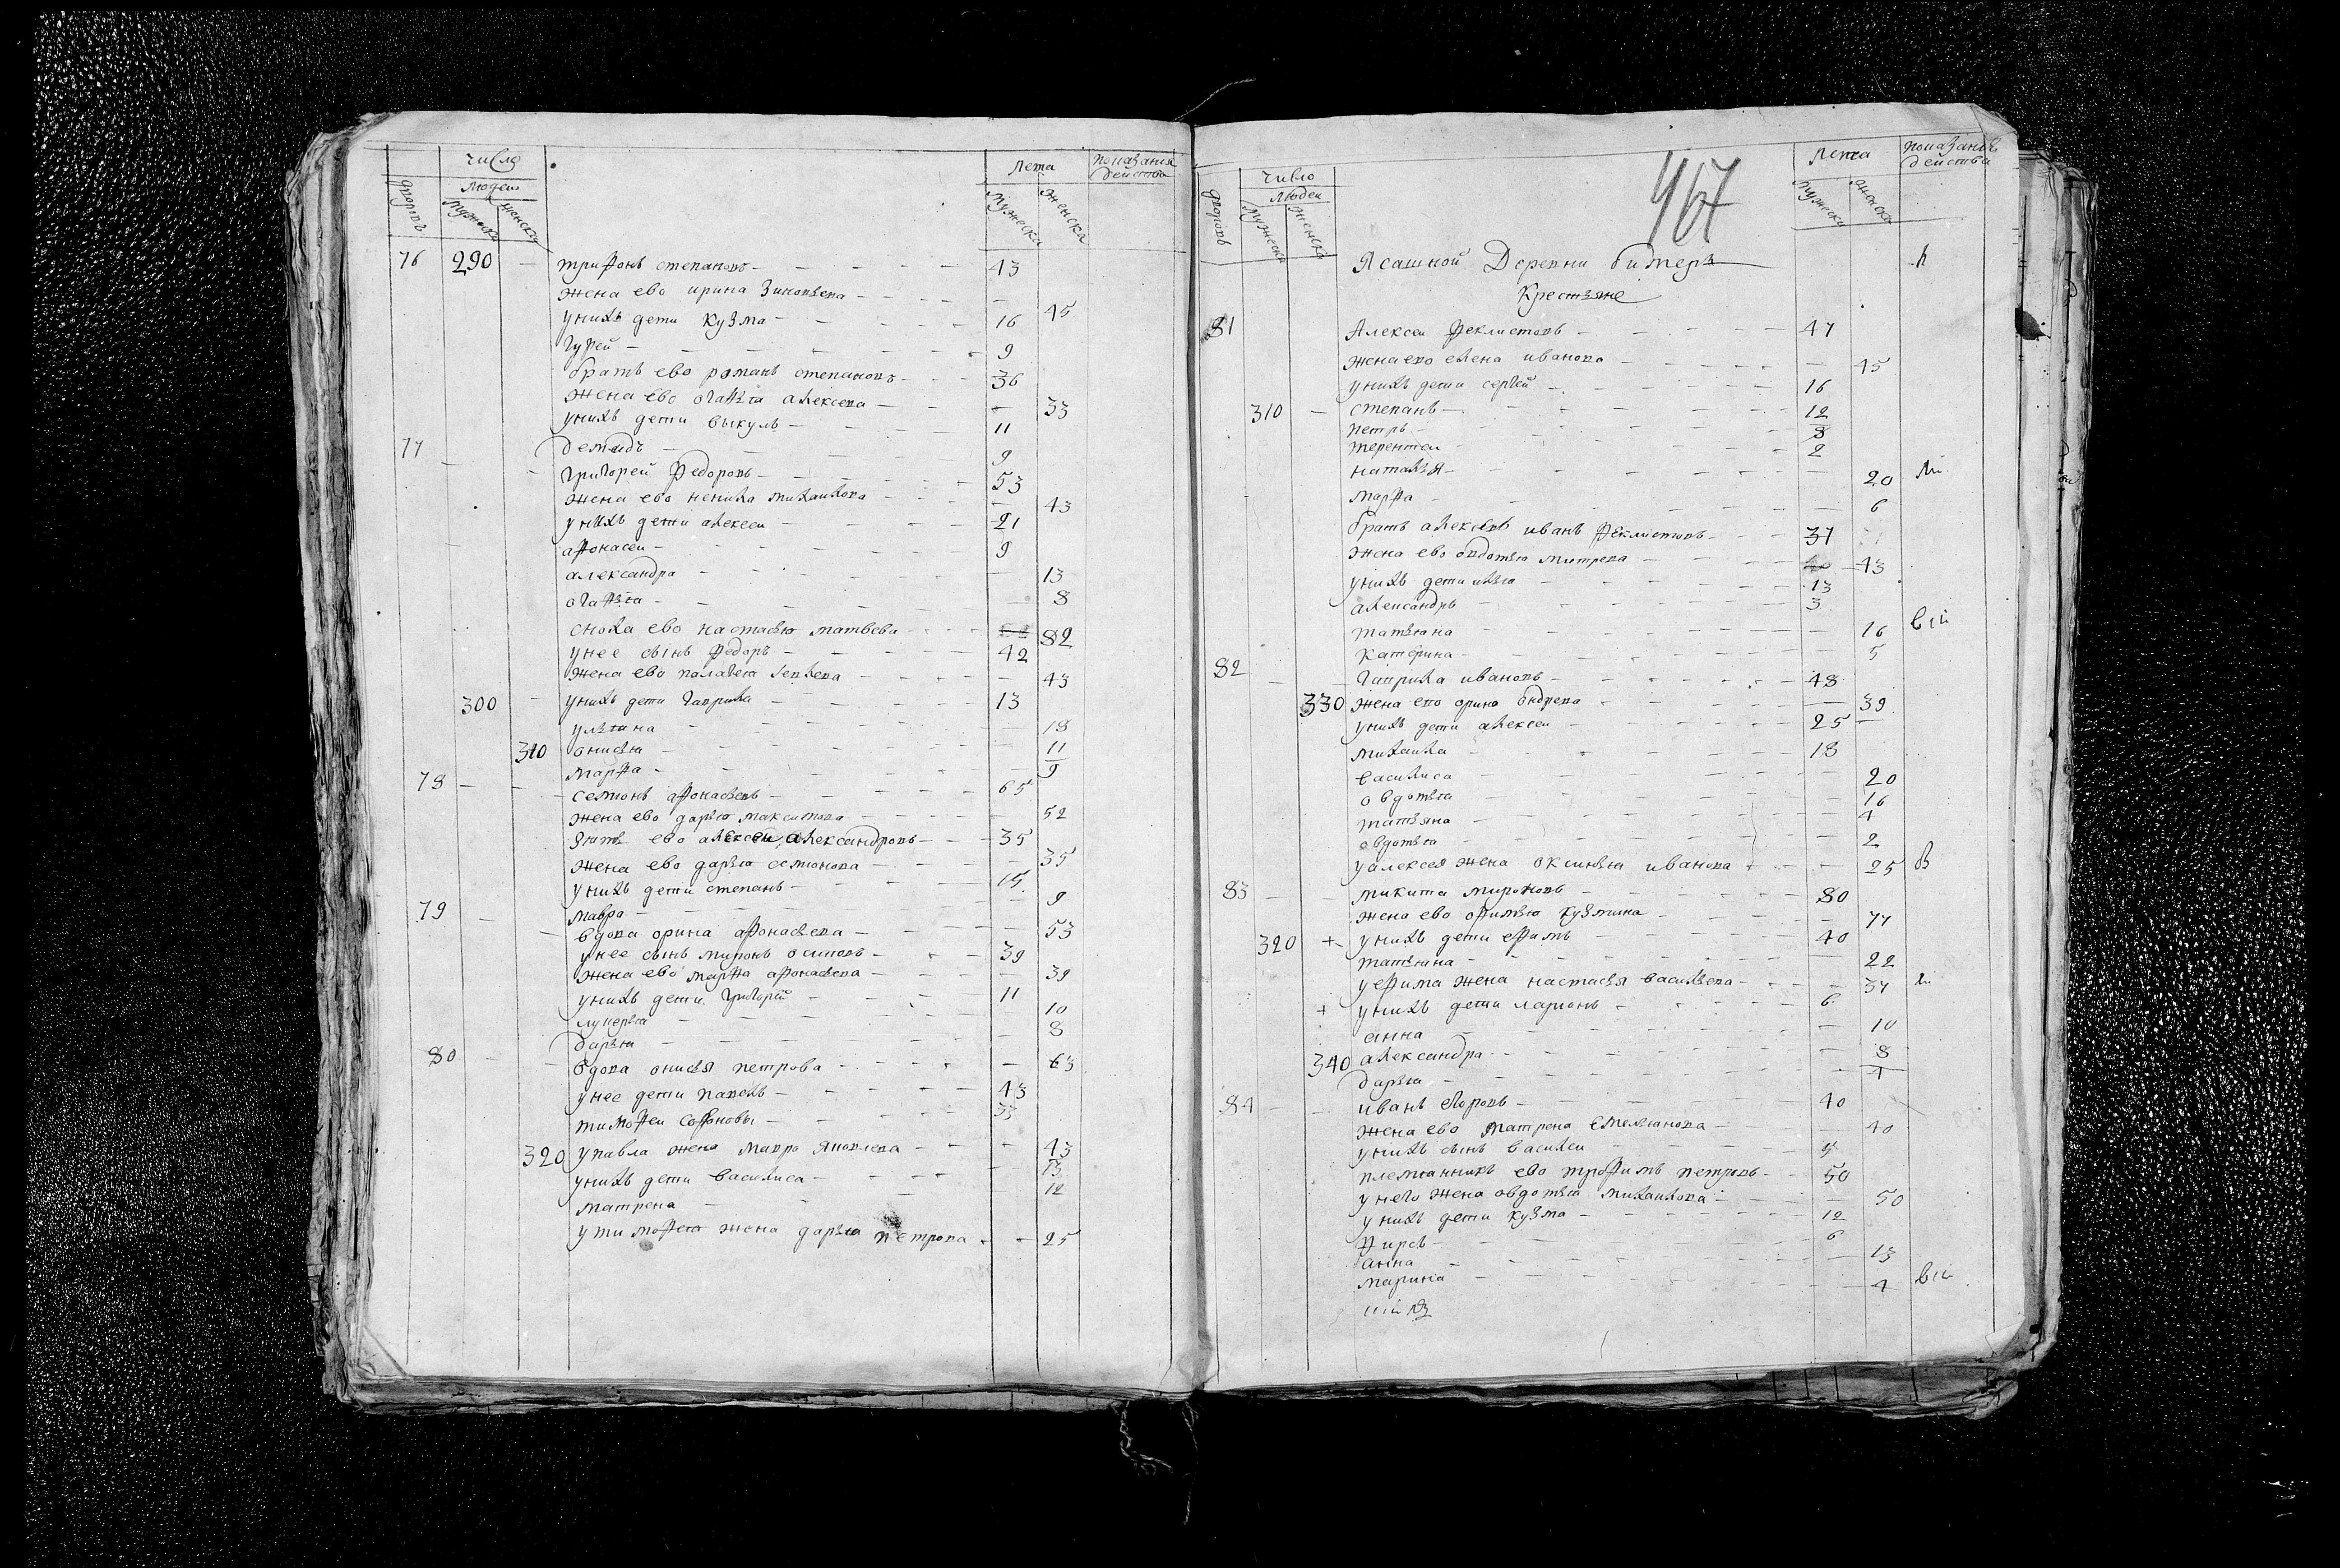 число
Лета
показания
действа
дворовъ
людей
мужеска
женска
мужеска
женска
76 290 трифонъ степановъ 43
жена ево ирина Зиновьева 45
унихъ дети кузма 16
гурей 9
братъ ево романъ степановъ 36
жена ево огафья алексеева 33
унихъ дети викулъ 11
демидъ 9
77 григорей Федоровъ 53
жена ево ненила михаилова 43
унихъ дети алексеи 21
афонасеи 9
александра 13
огафья 8
сноха ево настасья матвева 82
унее сынъ Федоръ 42
жена ево палагея 43
300 унихъ дети гаврила 13
ульяна 18
310 онисья 11
марфа 9
78 семионъ афонасьевъ 65
жена ево дарья максимова 52
зять ево алексеи александровъ 35
жена ево дарья семионова 35
унихъ дети степанъ 15
мавра 9
79 вдова орина афонасьева 53
унее сынъ миронъ осиповъ 39
жена ево марфа афонасьева 39
унихъ дети григорей 11
лукерья 10
дарья 8
80 вдова онисья петрова 63
унее дети павелъ 43
тимофеи софоновы 33
320 упавла жена мавро яковлева 43
унихъ дети василиса 13
матрена 12
утимофея жена дарья петрова 25
число
467
Лета
показания
действа
дворовъ
людеи
мужеска
женска
мужеска
женска
Ясашной Деревни бимеръ
Крестьяне
81 Алексеи Феклистовъ 47
жена ево елена иванова 45
унихъ дети сергей 16
310 степанъ 12
петръ 8
терентеи 2
наталья 20
марфа 6
братъ алексеевъ иванъ Феклистовъ 37
жена ево овдотья митрева 43
унихъ дети илья 13
александръ 3
татьяна 16
катерина 5
82 гаврила ивановъ 48
330 жена ево орина ондрева 39
унихъ дети алексеи 25
михаила 18
василиса 20
овдотья 16
татьяна 4
овдотья 2
уалексея жена оксинья иванова 25
83 микита мироновъ 80
жена ево офимья кузмина 77
320 + унихъ дети ефимъ 40
татьяна 22
уефима жена настасья васильева 37
+ унихъ дети ларионъ 6
анна 10
340 александра 8
дарья 4
84 иванъ егоровъ 40
жена ево матрена емельянова 40
унихъ сынъ василеи
племянникъ ево трофимъ петровъ 50
унего жена овдотья михаилова 50
унихъ дети кузма 12
Фирсъ 6
анна 13
марина 4